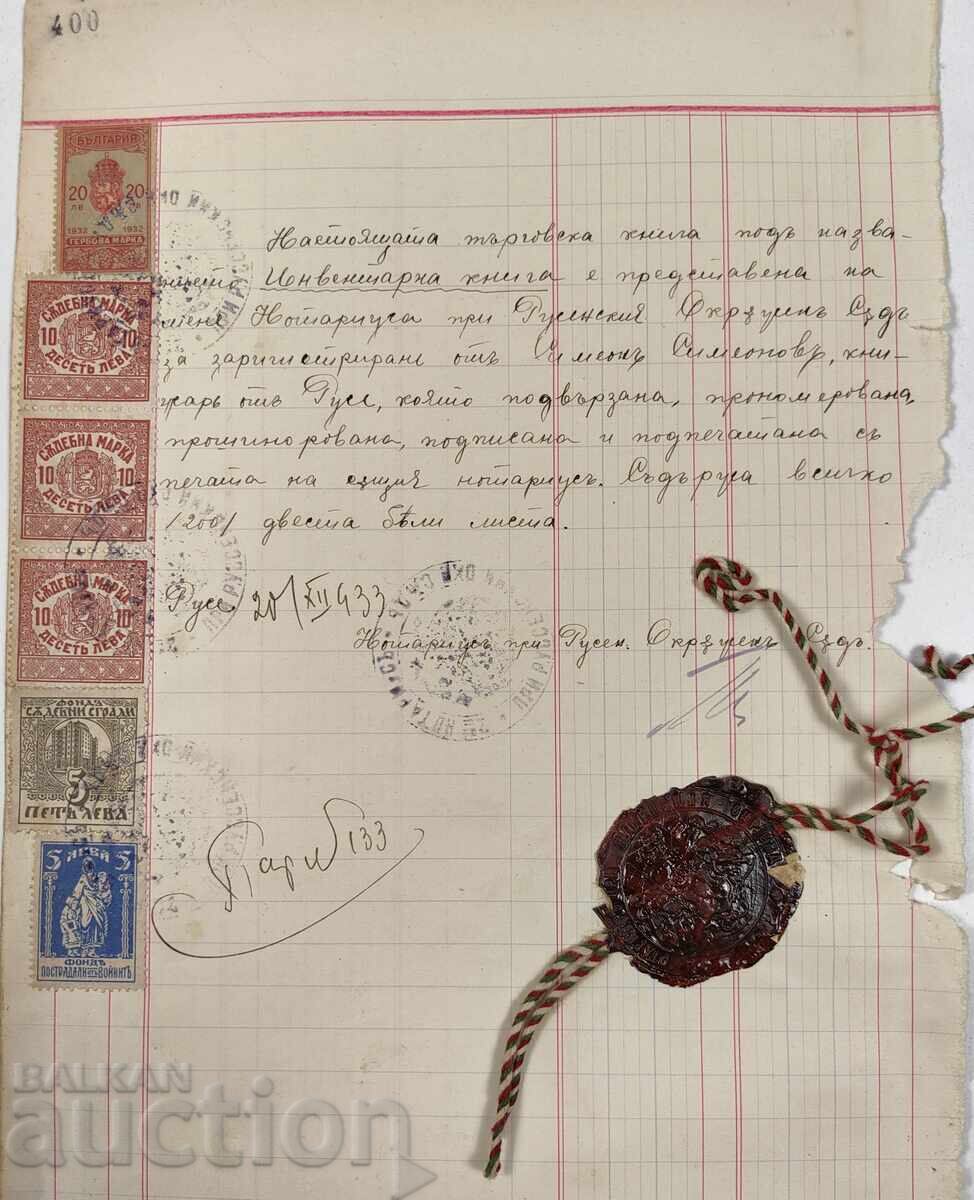 400
БЪЛГАРИЯ
20 20
ЛВ ЛВ
1932 1932
ГЕРБОВА МАРКА
СѪДЕБНА МАРКА
10 10
ДЕСЕТЬ ЛЕВА
СѪДЕБНА МАРКА
10 10
ДЕСЕТЬ ЛЕВА
СѪДЕБНА МАРКА
10 10
ДЕСЕТЬ ЛЕВА
ФОНДЪ
СѪДЕБНИ СГРАДИ
5
ПЕТЬ ЛЕВА
5 ЛЕВА 5
ФОНДЪ
ПОСТРАДАЛИ ОТЪ ВОЙНИТѢ
Настоящата търговска книга подъ назва-
нието Инвентарна книга е представена на
мене Нотариуса при Русенския Окрѫженъ Сѫдъ
за заригистриране отъ Симеонъ Симеоновъ, кни-
жарь отъ Русе, която подвързана, прономерована,
прошнорована, подписана и подпечатана съ
печата на сѫщия нотариусъ. Съдържа всичко
/200/ двеста бѣли листа.
Русе, 20/XII 933
Нотариусъ при Русен. Окрѫженъ Сѫдъ.
133
BALKAN
auction